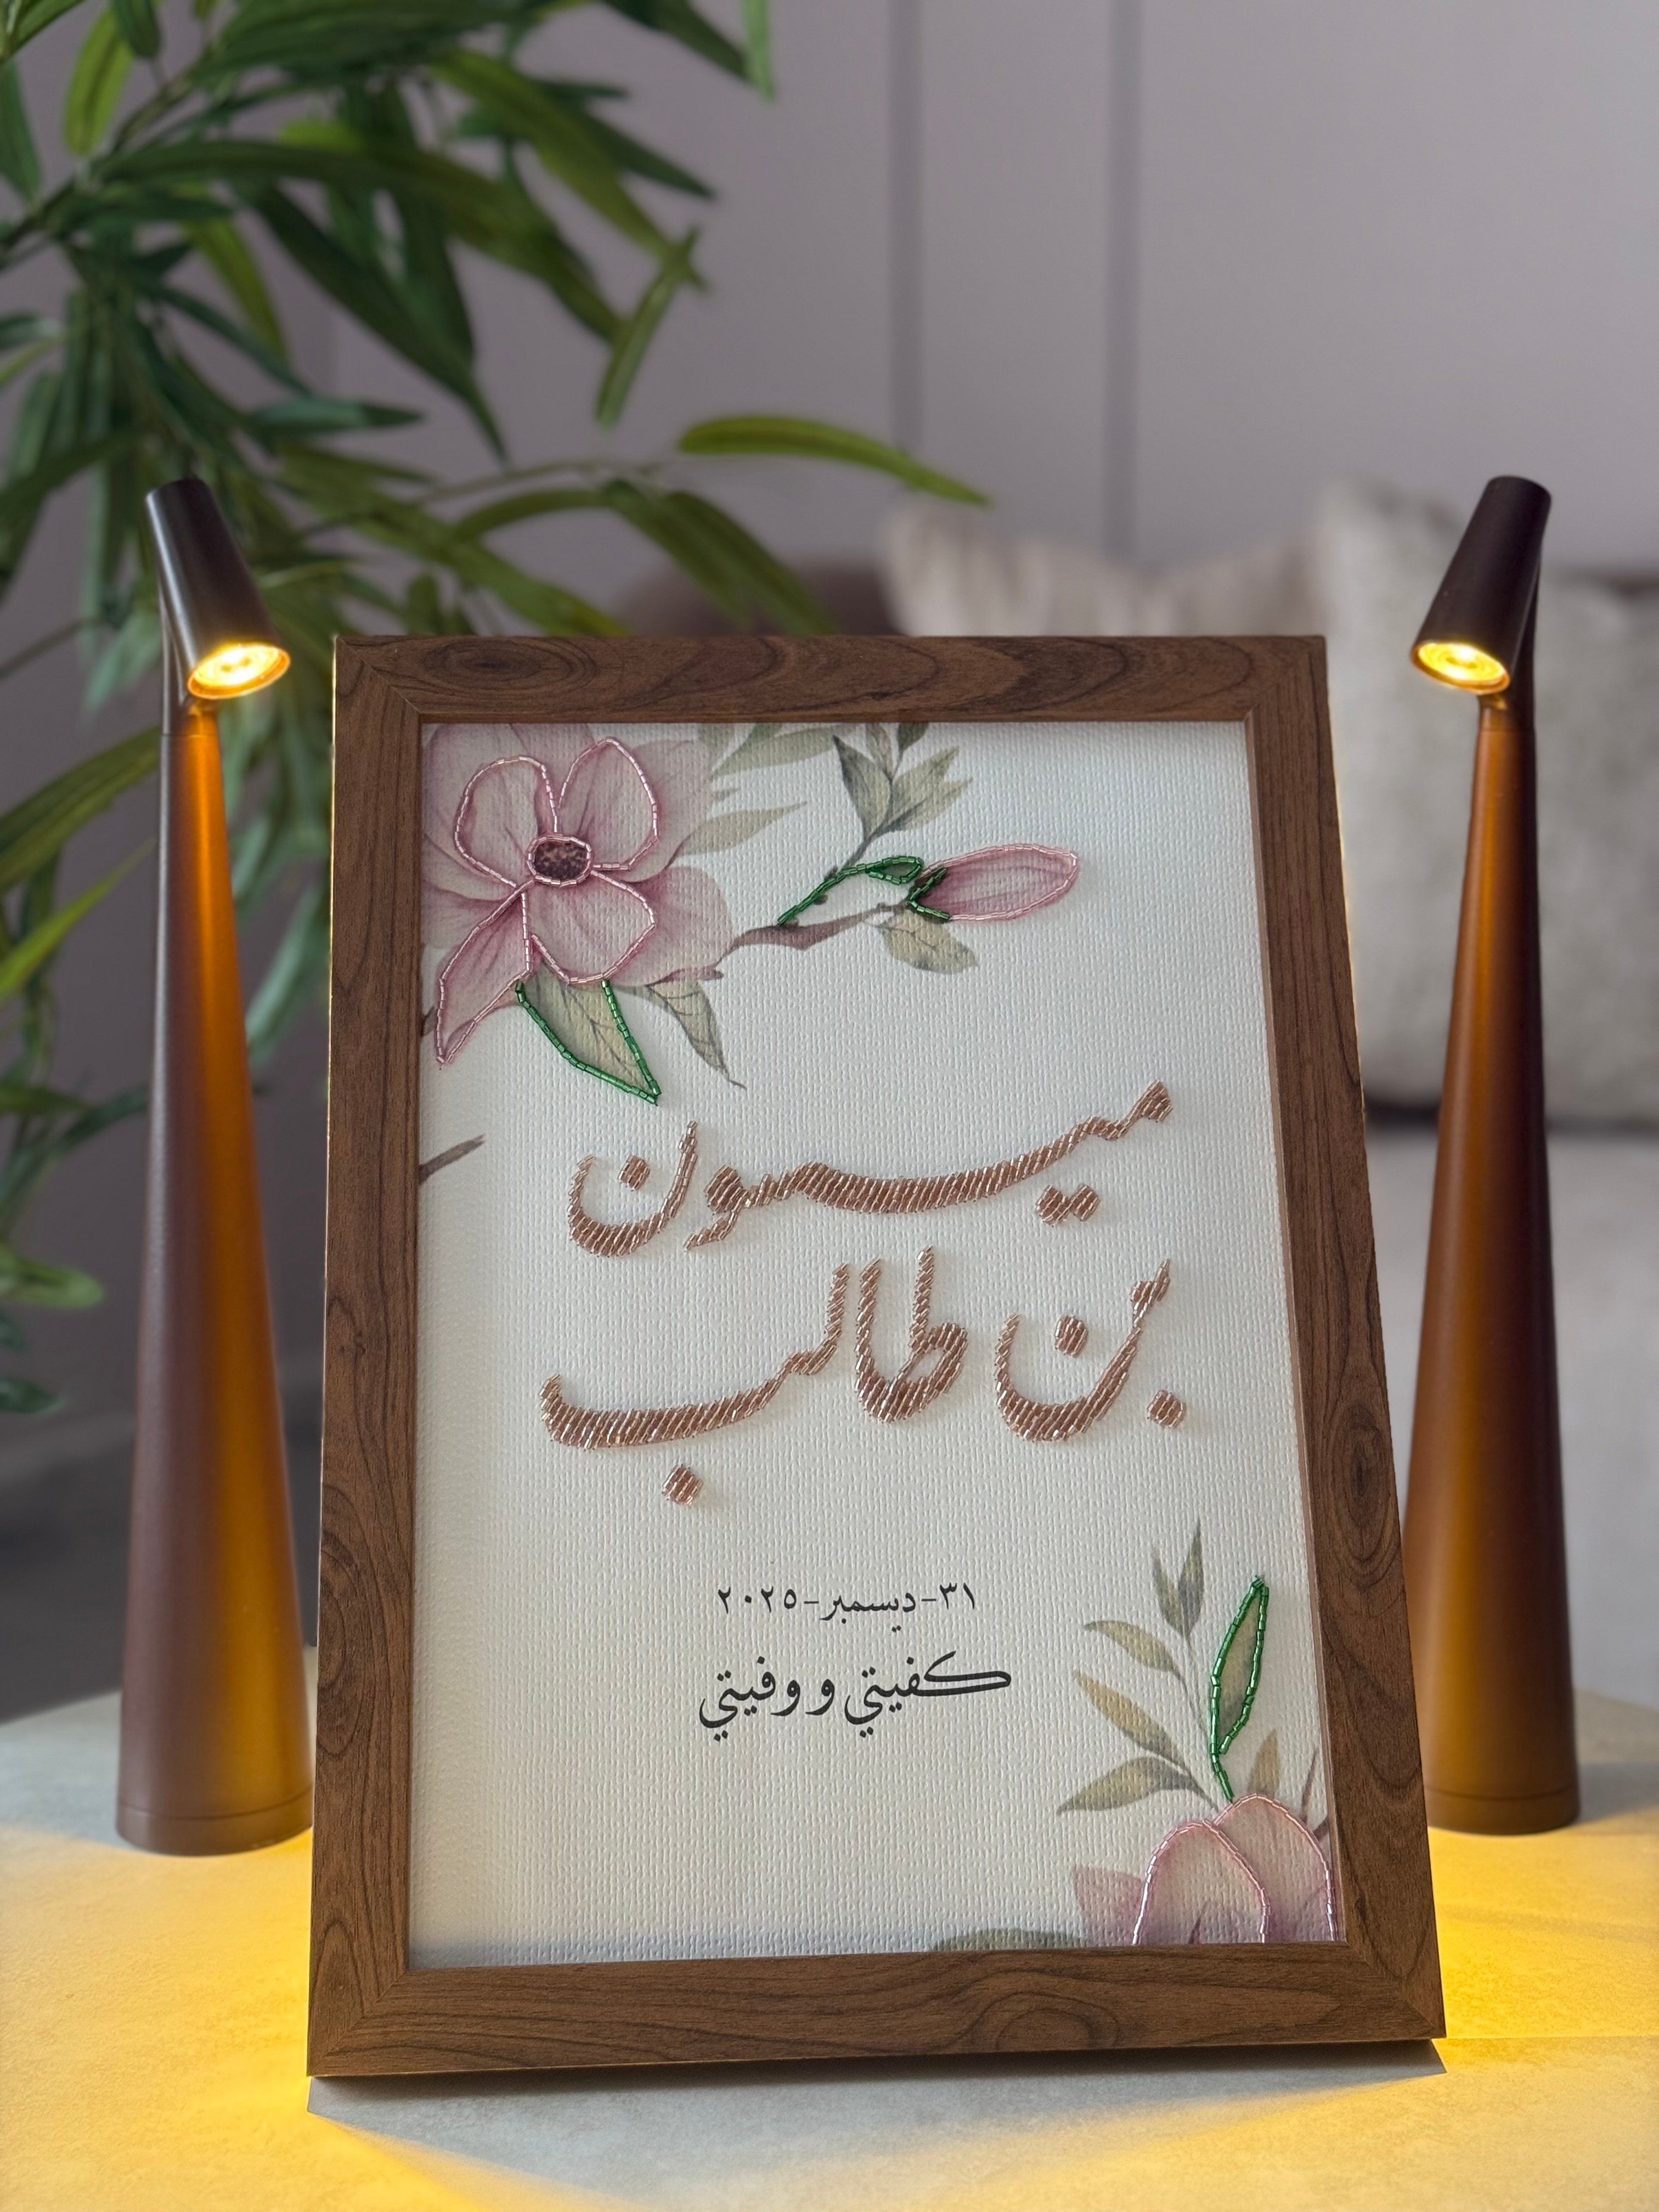 ميسون
بن طالب
٣١-ديسمبر-٢٠٢٥
كفيتي و وفيتي